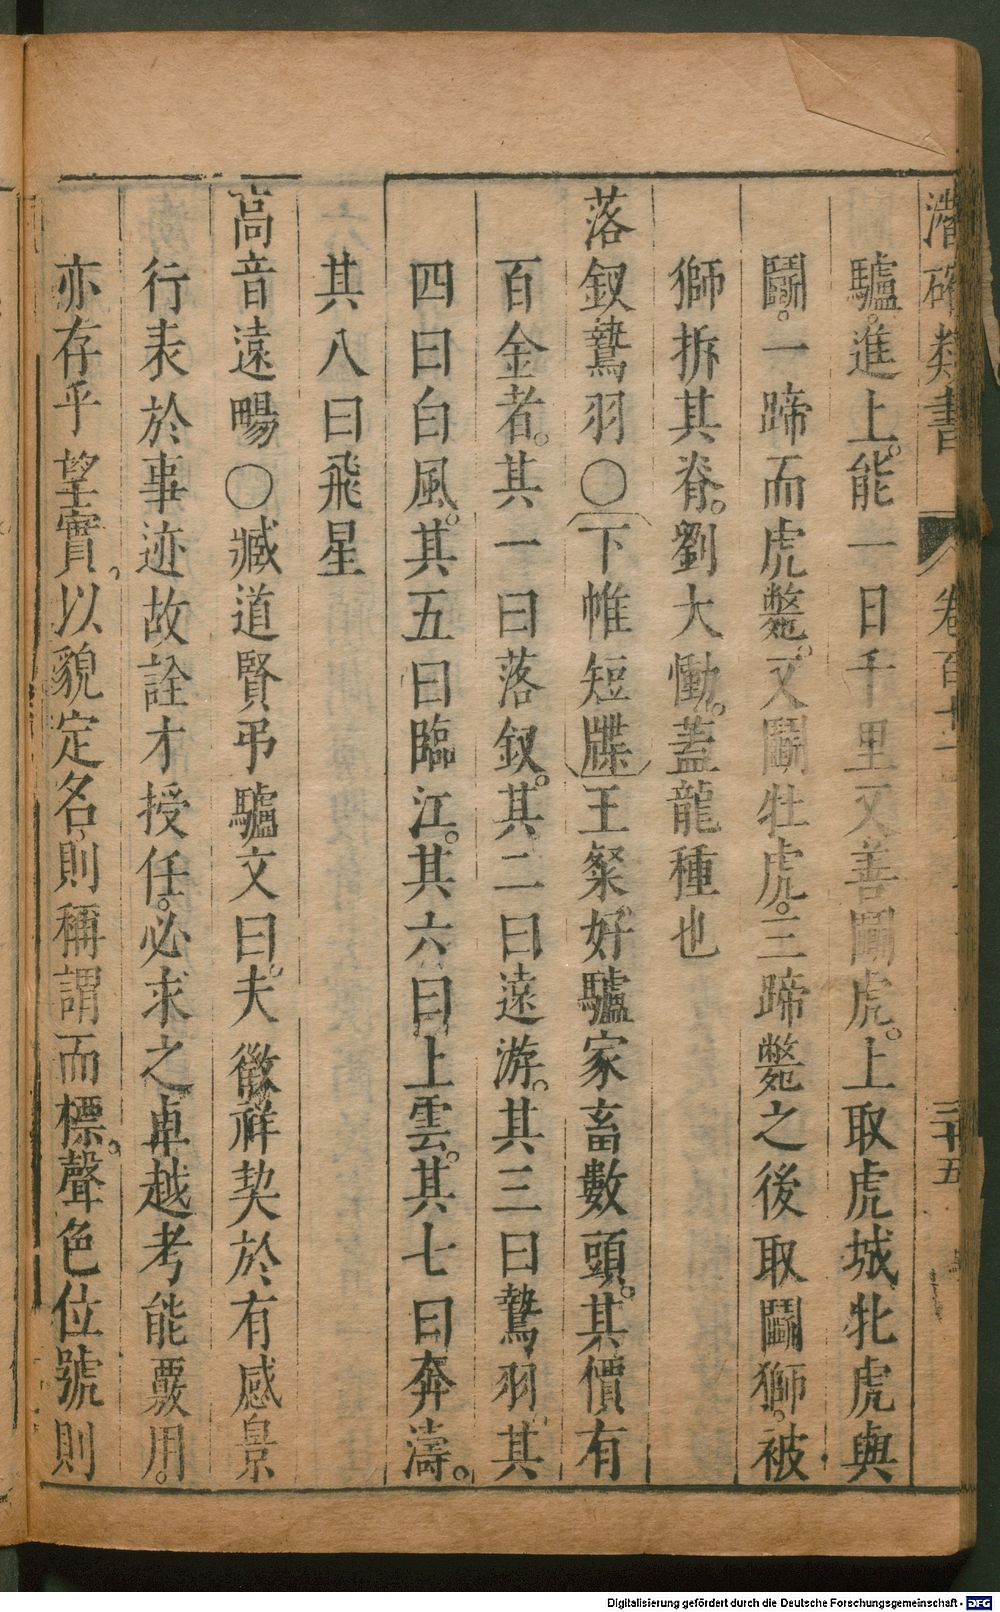 潛確類書 卷百十一 三十五
驢。進上。能一日千里又善鬭虎。上取虎城牝虎與
鬭。一蹄而虎斃。又鬭牡虎。三蹄斃之後取鬭獅。被
獅拆其脊。劉大慟。蓋龍種也
落釵鶩羽○下帷短牒 王粲好驢家畜數頭。其價有
百金者。其一曰落釵。其二曰遠游。其三曰鶩羽其
四曰白風。其五曰臨江。其六曰上雲。其七曰奔濤。
其八曰飛星
高音遠暢○臧道賢弔驢文曰。夫徵祥契於有感景
行表於事迹故詮才授任。必求之卓越考能覈用。
亦存乎望實。以貌定名則稱謂而標。聲色位號則
Digitalisierung gefördert durch die Deutsche Forschungsgemeinschaft - DFG